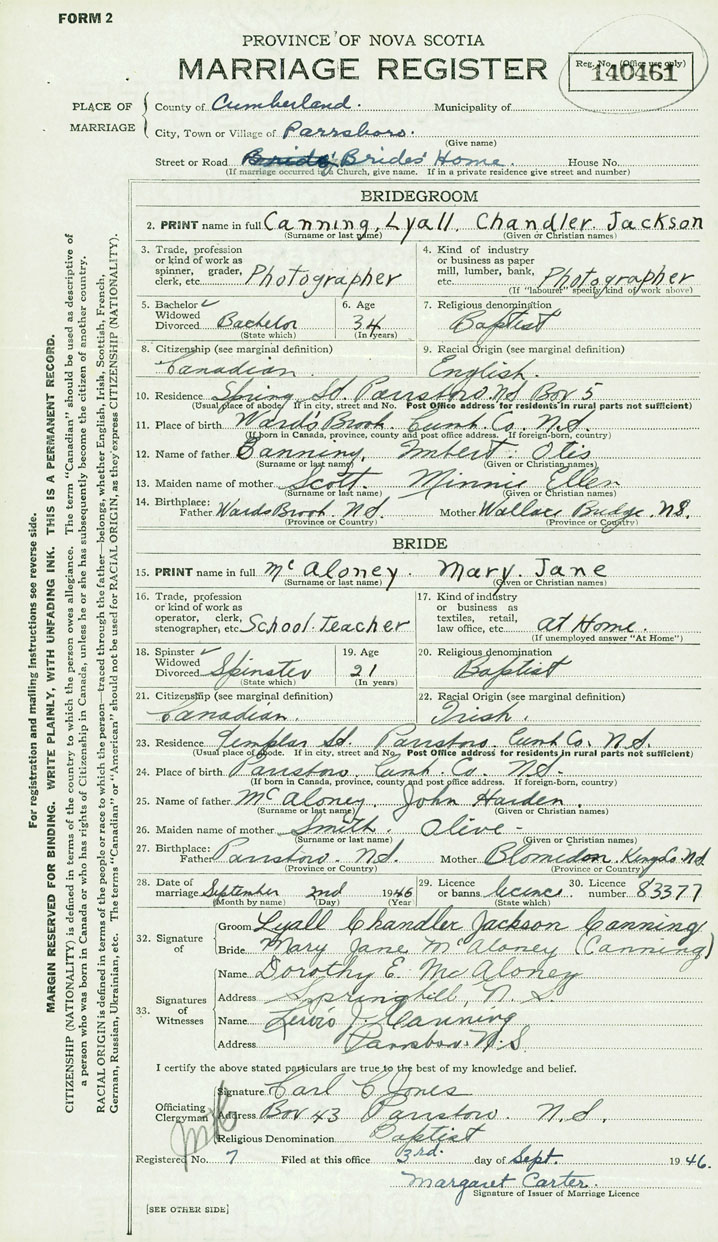 FORM 2
PROVINCE OF NOVA SCOTIA
MARRIAGE REGISTER
Reg. No. (Office use only)
140461
PLACE OF MARRIAGE
County of Cumberland. Municipality of
City, Town or Village of Parrsboro.
(Give name)
Street or Road Brides' Home. House No.
(If marriage occurred in a Church, give name. If in a private residence give street and number)
BRIDEGROOM
2. PRINT name in full Canning, Lyall, Chandler Jackson
(Surname or last name) (Given or Christian names)
3. Trade, profession or kind of work as spinner, grader, clerk, etc. Photographer
4. Kind of industry or business as paper mill, lumber, bank, etc. Photographer
(If "labourer" specify kind of work above)
5. Bachelor ✓ Widowed Divorced Bachelor
(State which)
6. Age 34
(In years)
7. Religious denomination Baptist
8. Citizenship (see marginal definition) Canadian.
9. Racial Origin (see marginal definition) English.
10. Residence Spring St. Parrsboro. N.S. Box 5
(Usual place of abode. If in city, street and No. Post Office address for residents in rural parts not sufficient)
11. Place of birth Ward's Brook Cumb. Co. N.S.
(If born in Canada, province, county and post office address. If foreign-born, country)
12. Name of father Canning, Imbert Otis
(Surname or last name) (Given or Christian names)
13. Maiden name of mother Scott. Minnie Ellen
(Surname or last name) (Given or Christian names)
14. Birthplace: Father Wards Brook N.S. Mother Wallace Bridge. N.S.
(Province or Country) (Province or Country)
BRIDE
15. PRINT name in full McAloney. Mary Jane
(Surname or last name) (Given or Christian names)
16. Trade, profession or kind of work as operator, clerk, stenographer, etc. School Teacher
17. Kind of industry or business as textiles, retail, law office, etc. at Home.
(If unemployed answer "At Home")
18. Spinster ✓ Widowed Divorced Spinster
(State which)
19. Age 21
(In years)
20. Religious denomination Baptist
21. Citizenship (see marginal definition) Canadian.
22. Racial Origin (see marginal definition) Irish.
23. Residence Templar St. Parrsboro Cumb Co. N.S.
(Usual place of abode. If in city, street and No. Post Office address for residents in rural parts not sufficient)
24. Place of birth Parrsboro Cumb. Co. N.S.
(If born in Canada, province, county and post office address. If foreign-born, country)
25. Name of father McAloney, John Harden.
(Surname or last name) (Given or Christian names)
26. Maiden name of mother Smith. Olive -
(Surname or last name) (Given or Christian names)
27. Birthplace: Father Parrsboro. N.S. Mother Blomidon. Kings Co. N.S.
(Province or Country) (Province or Country)
28. Date of marriage September 2nd 1946
(Month by name) (Day) (Year)
29. Licence or banns licence
(State which)
30. Licence number 83377
32. Signature of
Groom Lyall Chandler Jackson Canning
Bride Mary Jane McAloney (Canning)
33. Signatures of Witnesses
Name Dorothy E. McAloney
Address Springhill, N. S.
Name Lewis J. Canning
Address Parrsboro. N.S
I certify the above stated particulars are true to the best of my knowledge and belief.
Officiating Clergyman
Signature Carl C Jones
Address Box 43 Parrsboro. N.S.
Religious Denomination Baptist
Registered No. 7 Filed at this office 3rd. day of Sept. 1946.
Margaret Carter.
Signature of Issuer of Marriage Licence
[SEE OTHER SIDE]
For registration and mailing instructions see reverse side.
MARGIN RESERVED FOR BINDING. WRITE PLAINLY, WITH UNFADING INK. THIS IS A PERMANENT RECORD.
CITIZENSHIP (NATIONALITY) is defined in terms of the country to which the person owes allegiance. The term "Canadian" should be used as descriptive of
a person who was born in Canada or who has rights of Citizenship in Canada, unless he or she has subsequently become the citizen of another country.
RACIAL ORIGIN is defined in terms of the people or race to which the person—traced through the father—belongs, whether English, Irish, Scottish, French,
German, Russian, Ukrainian, etc. The terms "Canadian" or "American" should not be used for RACIAL ORIGIN, as they express CITIZENSHIP (NATIONALITY).